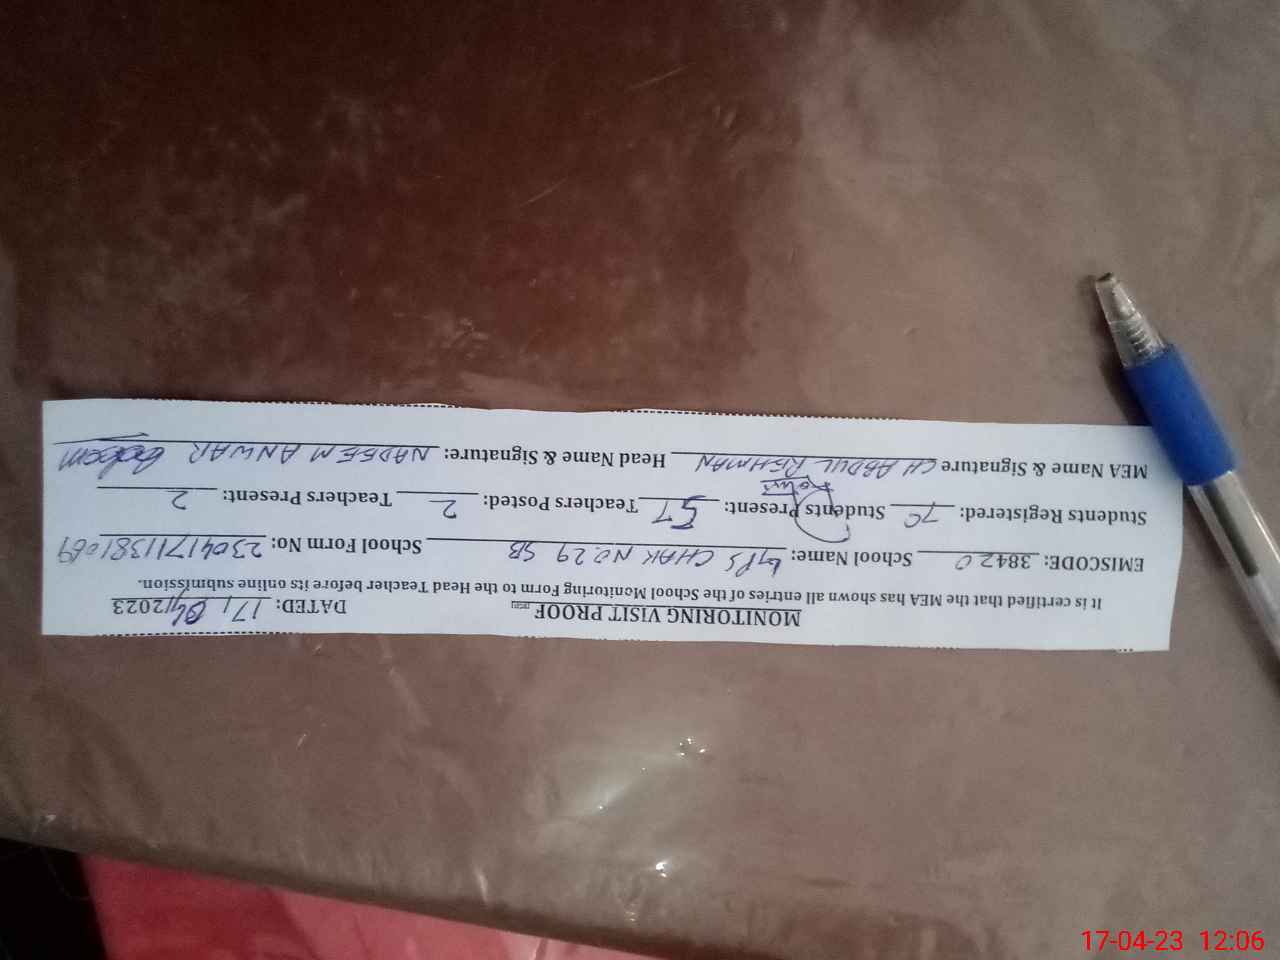 MONITORING VISIT PROOF
DATED: 17/04/2023
It is certified that the MEA has shown all entries of the School Monitoring Form to the Head Teacher before its online submission.
EMISCODE: 38420 School Name: GPS CHAK NO.29 SB School Form No: 230417113811069
Students Registered: 70 Students Present: 57 Teachers Posted: 2 Teachers Present: 2
MEA Name & Signature CH ABDUL REHMAN Head Name & Signature: NADEEM ANWAR
17-04-23 12:06